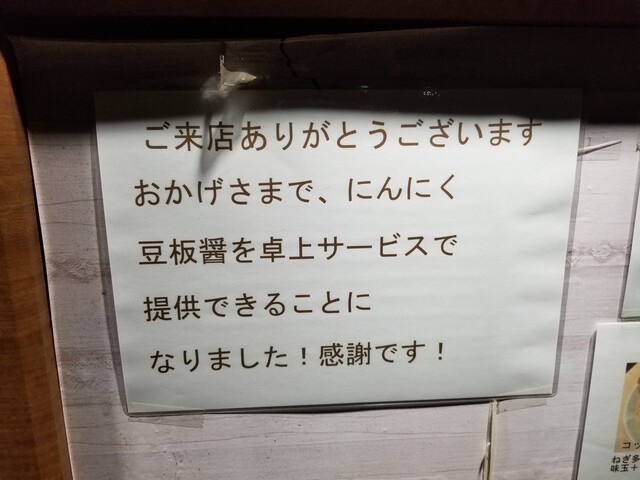 ご来店ありがとうございます
おかげさまで、にんにく
豆板醤を卓上サービスで
提供できることに
なりました！感謝です！
コッ
ねぎ多
味玉＋